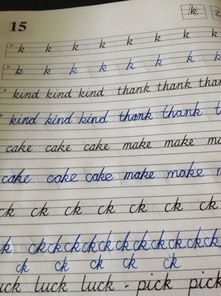 15
k
k k k k k k k
k k k k k k k
kind kind kind thank thank than
kind kind kind thank thank t
cake cake cake make make ma
cake cake cake make make m
ck ck ck ck ck ck ck
k ck ck ck ck ck ck ck ck ck ck
ck ck ck ck ck
uck luck luck - pick pick